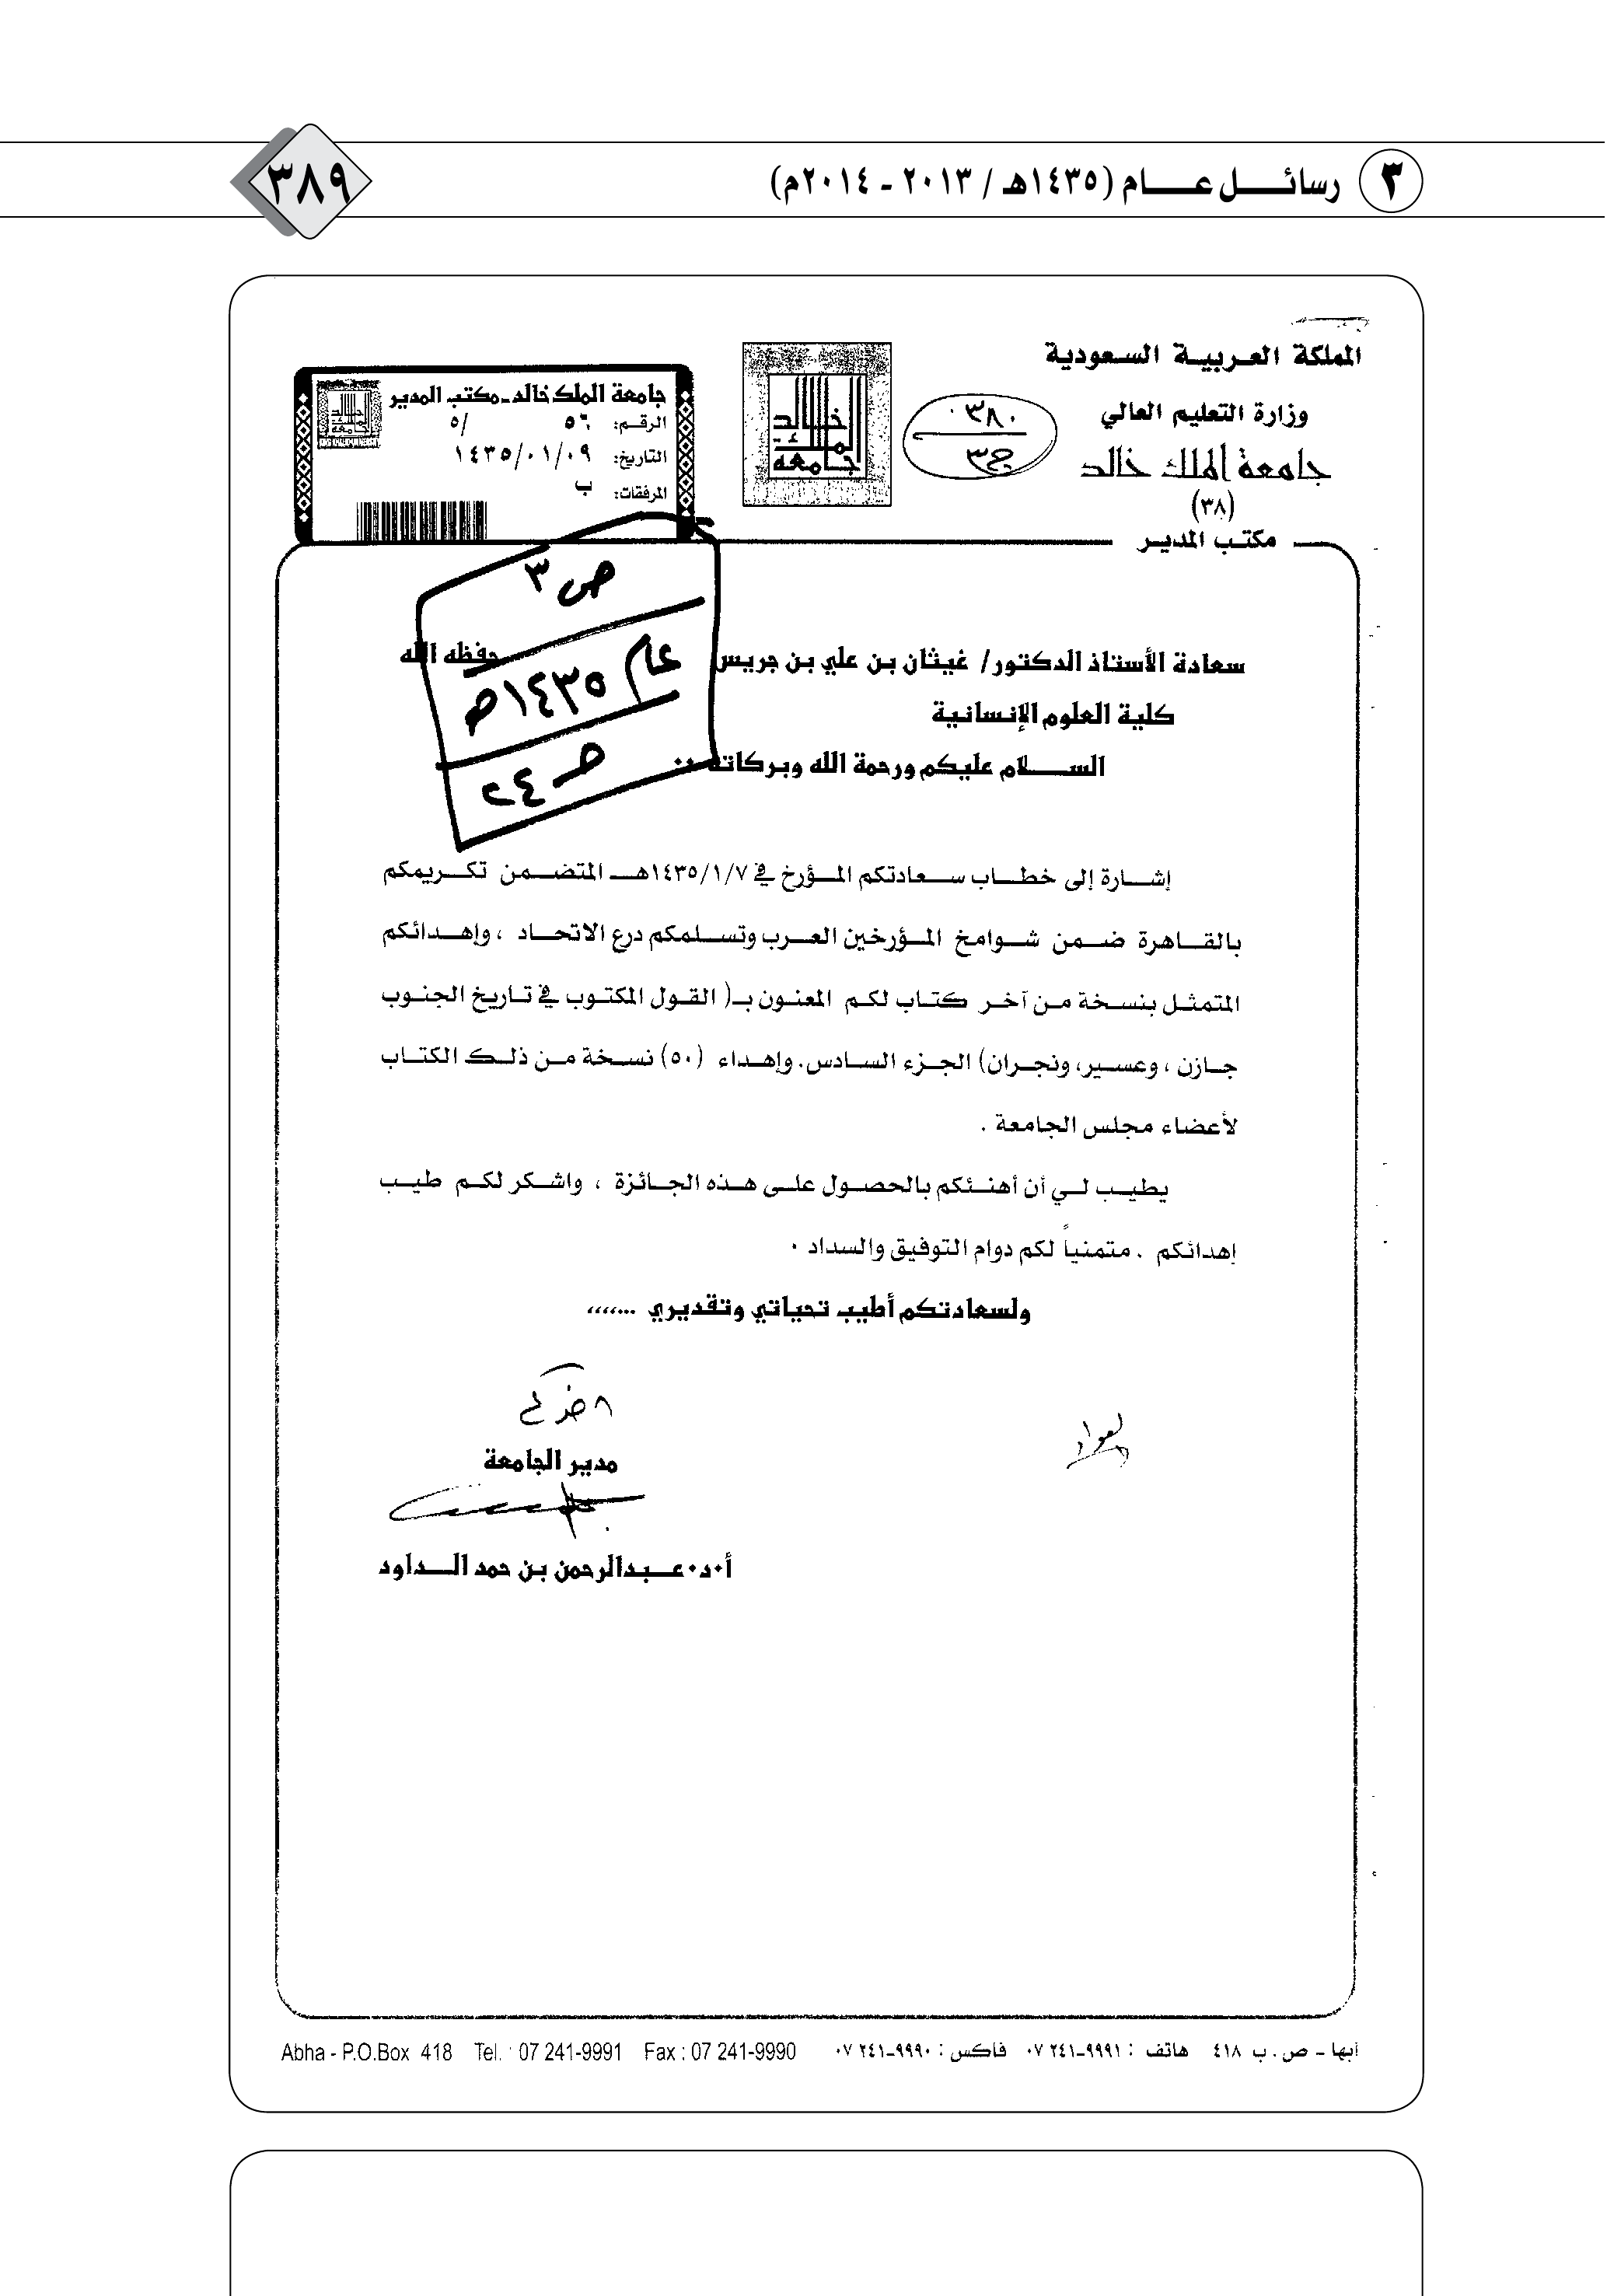 ٣ رسائل عام (١٤٣٥هـ / ٢٠١٣ - ٢٠١٤م)
٣٨٩
المملكة العربية السعودية
وزارة التعليم العالي
جامعة الملك خالد
(٣٨)
مكتب المدير
٣٨٠
جامعة الملك خالد
جامعة الملك خالد - مكتب المدير
الرقم: ٥٦ /٥
التاريخ: ١٤٣٥/٠١/٠٩
المرفقات: ب
ص ٣
عام ١٤٣٥هـ
صـ ٢٤
سعادة الأستاذ الدكتور/ غيثان بن علي بن جريس حفظه الله
كلية العلوم الإنسانية
السلام عليكم ورحمة الله وبركاته ..
إشارة إلى خطاب سعادتكم المؤرخ في ١٤٣٥/١/٧هـ المتضمن تكريمكم
بالقاهرة ضمن شوامخ المؤرخين العرب وتسلمكم درع الاتحاد ، وإهدائكم
المتمثل بنسخة من آخر كتاب لكم المعنون بـ( القول المكتوب في تاريخ الجنوب
جازن ، وعسير، ونجران) الجزء السادس. وإهداء (٥٠) نسخة من ذلك الكتاب
لأعضاء مجلس الجامعة .
يطيب لي أن أهنئكم بالحصول على هذه الجائزة ، واشكر لكم طيب
إهدائكم . متمنياً لكم دوام التوفيق والسداد ٠
ولسعادتكم أطيب تحياتي وتقديري ...،،،،
مدير الجامعة
أ٠د٠عبدالرحمن بن حمد الداود
أبها - ص . ب ٤١٨ هاتف : ٩٩٩١-٢٤١ ٠٧ فاكس : ٩٩٩٠-٢٤١ ٠٧
Abha - P.O.Box 418 Tel. : 07 241-9991 Fax : 07 241-9990